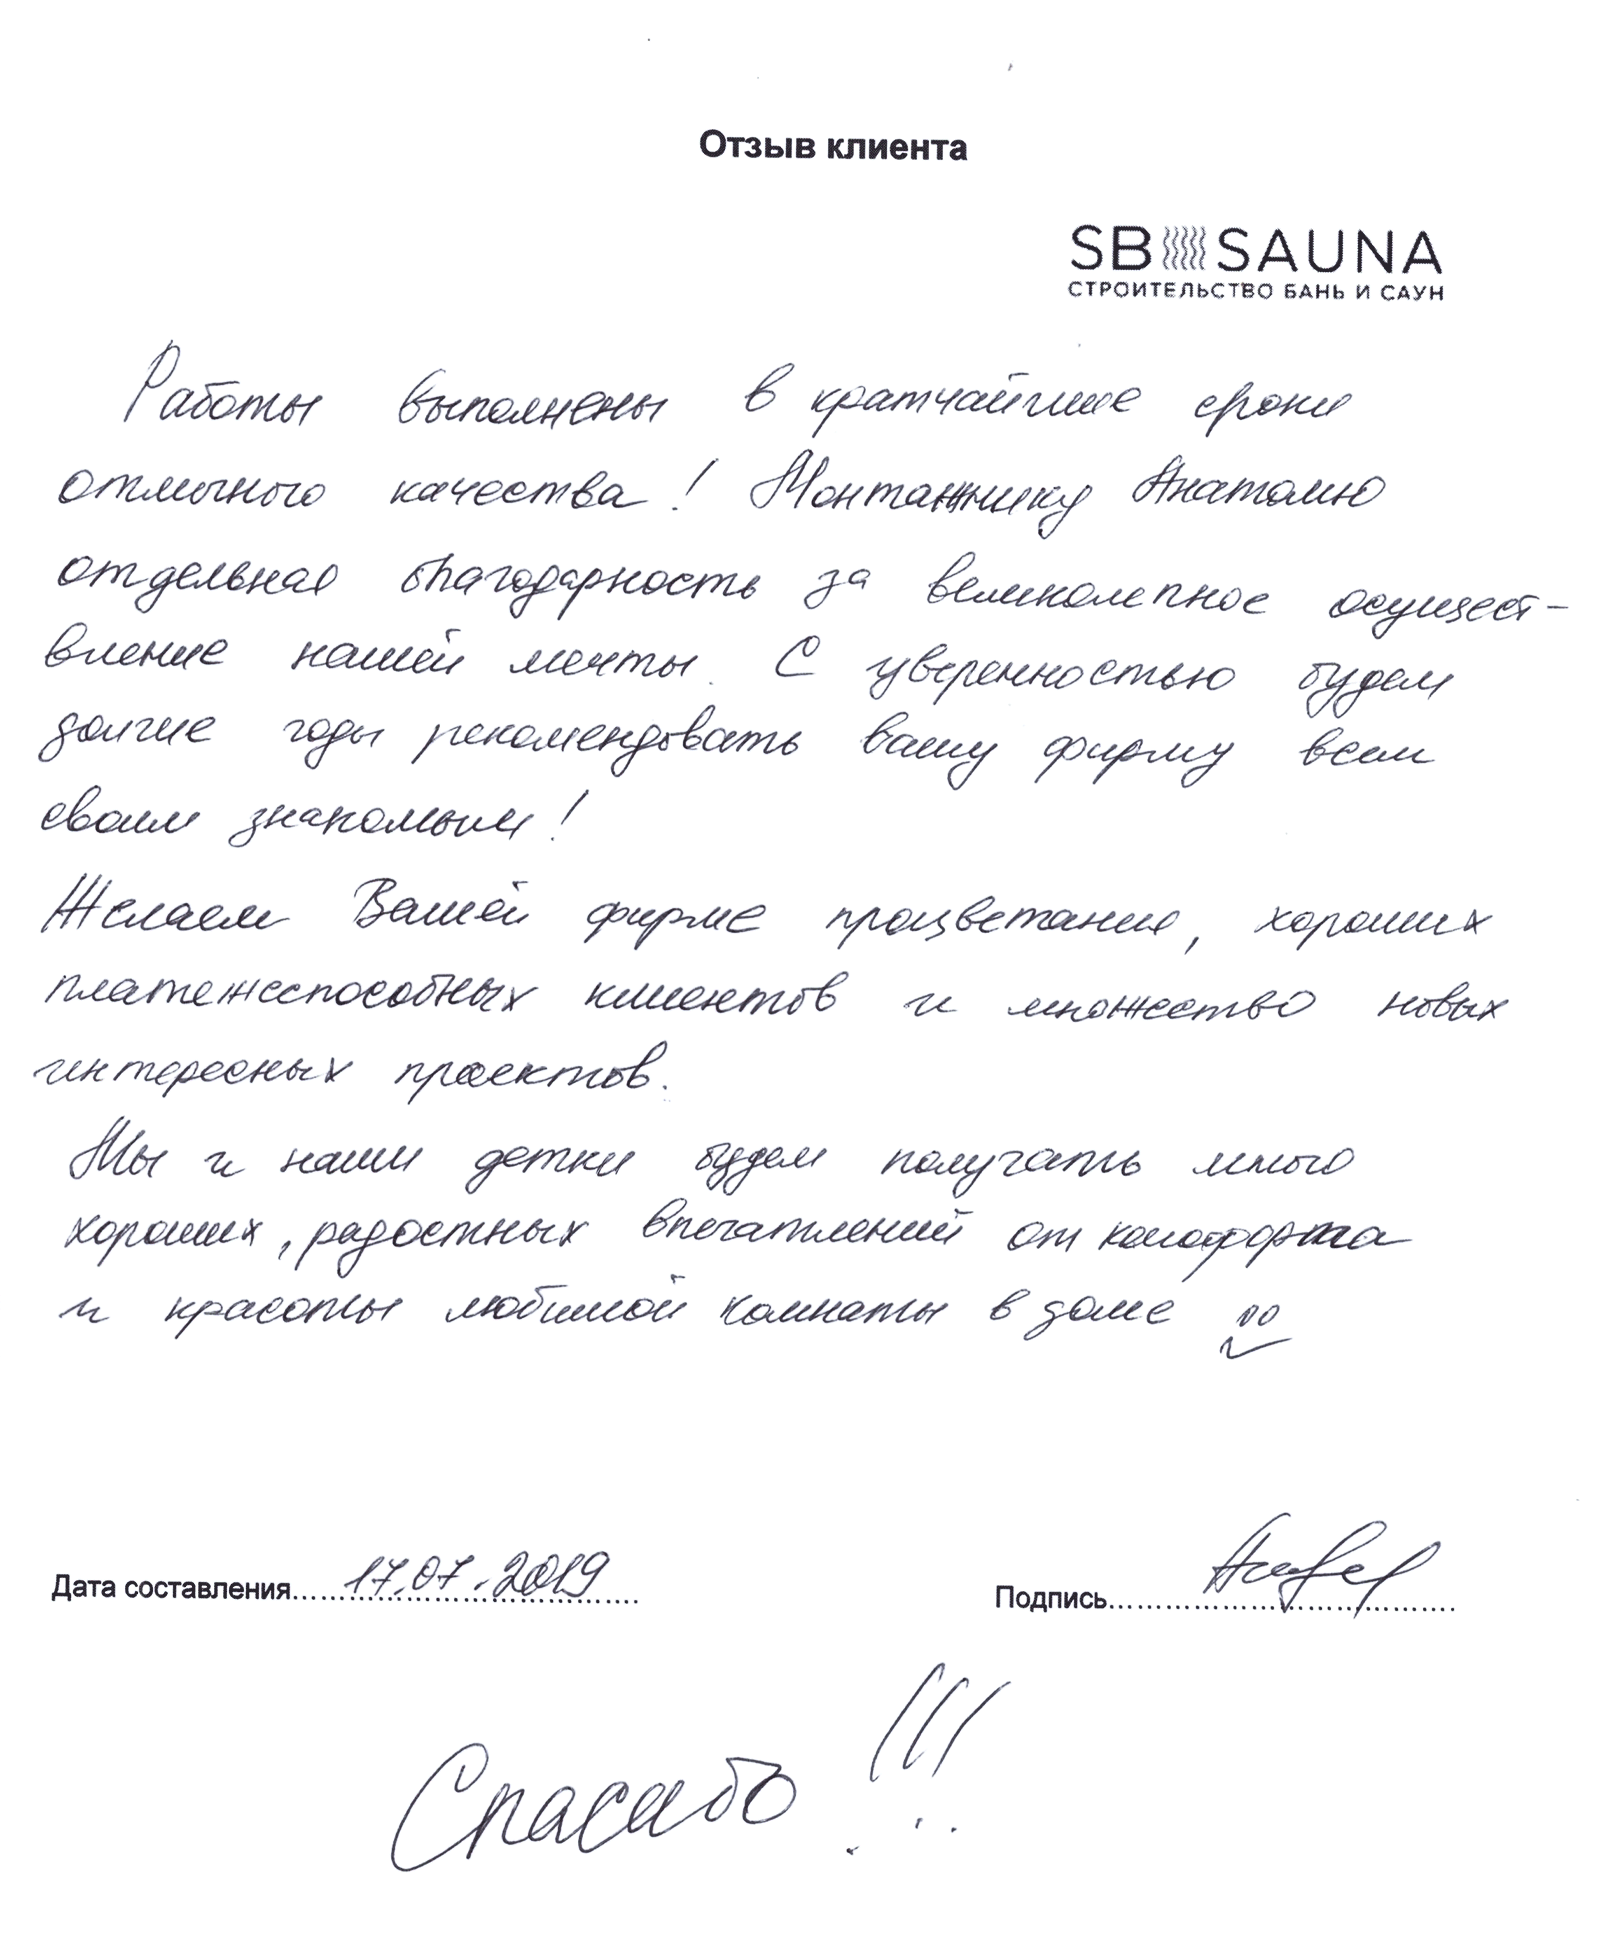 Отзыв клиента
SB SAUNA
СТРОИТЕЛЬСТВО БАНЬ И САУН
Работы выполнены в кратчайшие сроки
отличного качества! Монтажнику Анатолию
отдельная благодарность за великолепное осущест-
вление нашей мечты. С уверенностью будем
долгие годы рекомендовать вашу фирму всем
своим знакомым!
Желаем Вашей фирме процветания, хороших
платежеспособных клиентов и множество новых
интересных проектов.
Мы и наши детки будем получать много
хороших, радостных впечатлений от комфорта
и красоты любимой комнаты в доме
Дата составления 17.07.2019
Подпись
Спасибо!!!